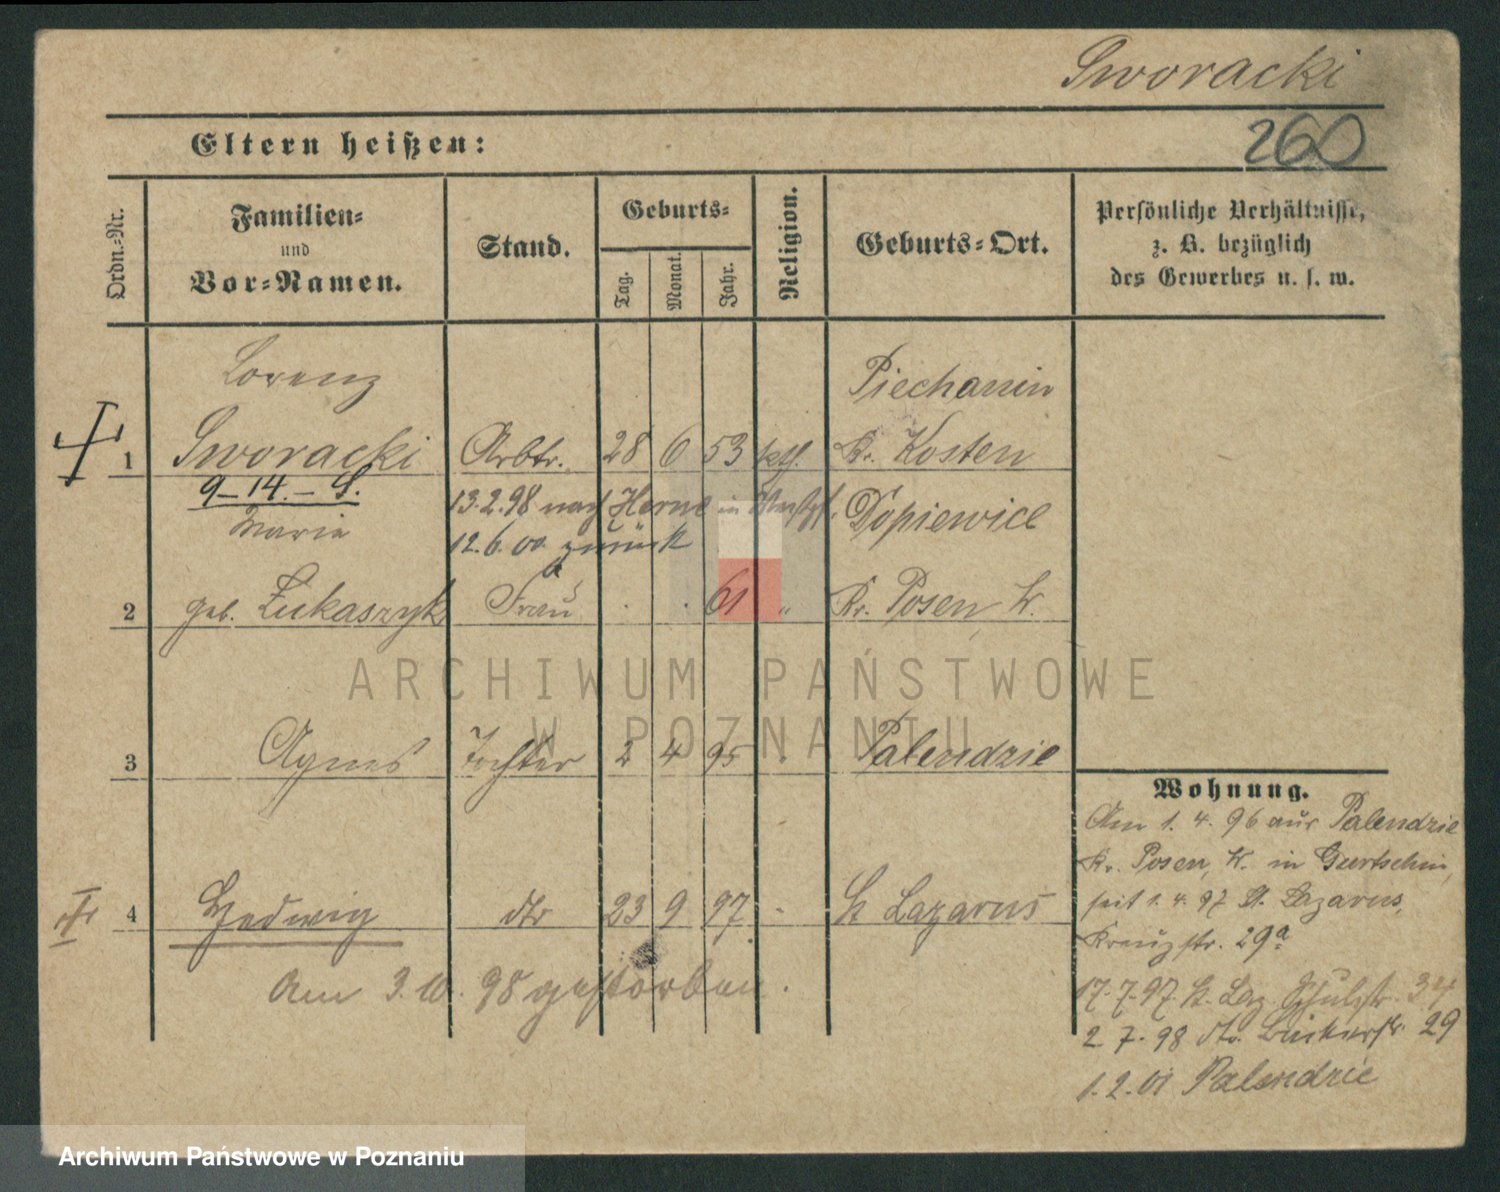 Sworacki
Eltern heißen:
260
Ordn.-Nr.
Familien-
und
Vor-Namen.
Stand.
Geburts-
Tag.
Monat.
Jahr.
Religion.
Geburts-Ort.
Persönliche Verhältnisse,
z. B. bezüglich
des Gewerbes u. s. w.
Lorenz
Piechanin
1 Sworacki Arbtr. 28 6 53 kth. Kr. Kosten
9-14.-S.
13.2.98 nach Herne in Westpf. Dopiewice
Marie
12.6.00 zurück
2 geb. Łukaszyk Frau 61 " Kr. Posen, W.
3 Agnes Tochter 2 4 95 Palendzie
4 Hedwig dto 23 9 97 - St Lazarus
Am 3. 10. 98 gestorben.
Wohnung.
Am 1. 4. 96 aus Palendzie
Kr. Posen, W. in Gurtschin,
seit 1. 4. 97 St. Lazarus,
Kreuzstr. 29a
17.7.97 St. Laz. Schulstr. 34
2 7. 98 dto. 29
1.2.01 Palendzie
ARCHIWUM PAŃSTWOWE
W POZNANIU
Archiwum Państwowe w Poznaniu